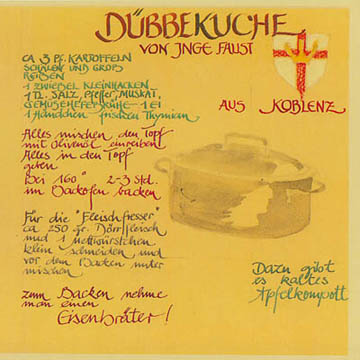 DÜBBEKUCHE
VON INGE FAUST
CA 3 Pf. KARTOFFELN
SCHÄLEN UND GROB
REIBEN
1 ZWIEBEL KLEINHACKEN
1 TL. SALZ, Pfeffer, MUSKAT,
GEMÜSEHEFEBRÜHE - 1 EI
1 Händchen frischen Thymian
AUS KOBLENZ
Alles mischen, den Topf
mit Olivenöl einreiben
Alles in den Topf
geben
Bei 160° 2-3 Std.
im Backofen backen
Für die "Fleischfresser"
ca 250 gr. Dörrfleisch
und 1 Mettwürstchen
klein schneiden und
vor dem Backen unter
mischen
zum Backen nehme
man einen
Eisenbräter!
Dazu gibt
es kaltes
Apfelkompott